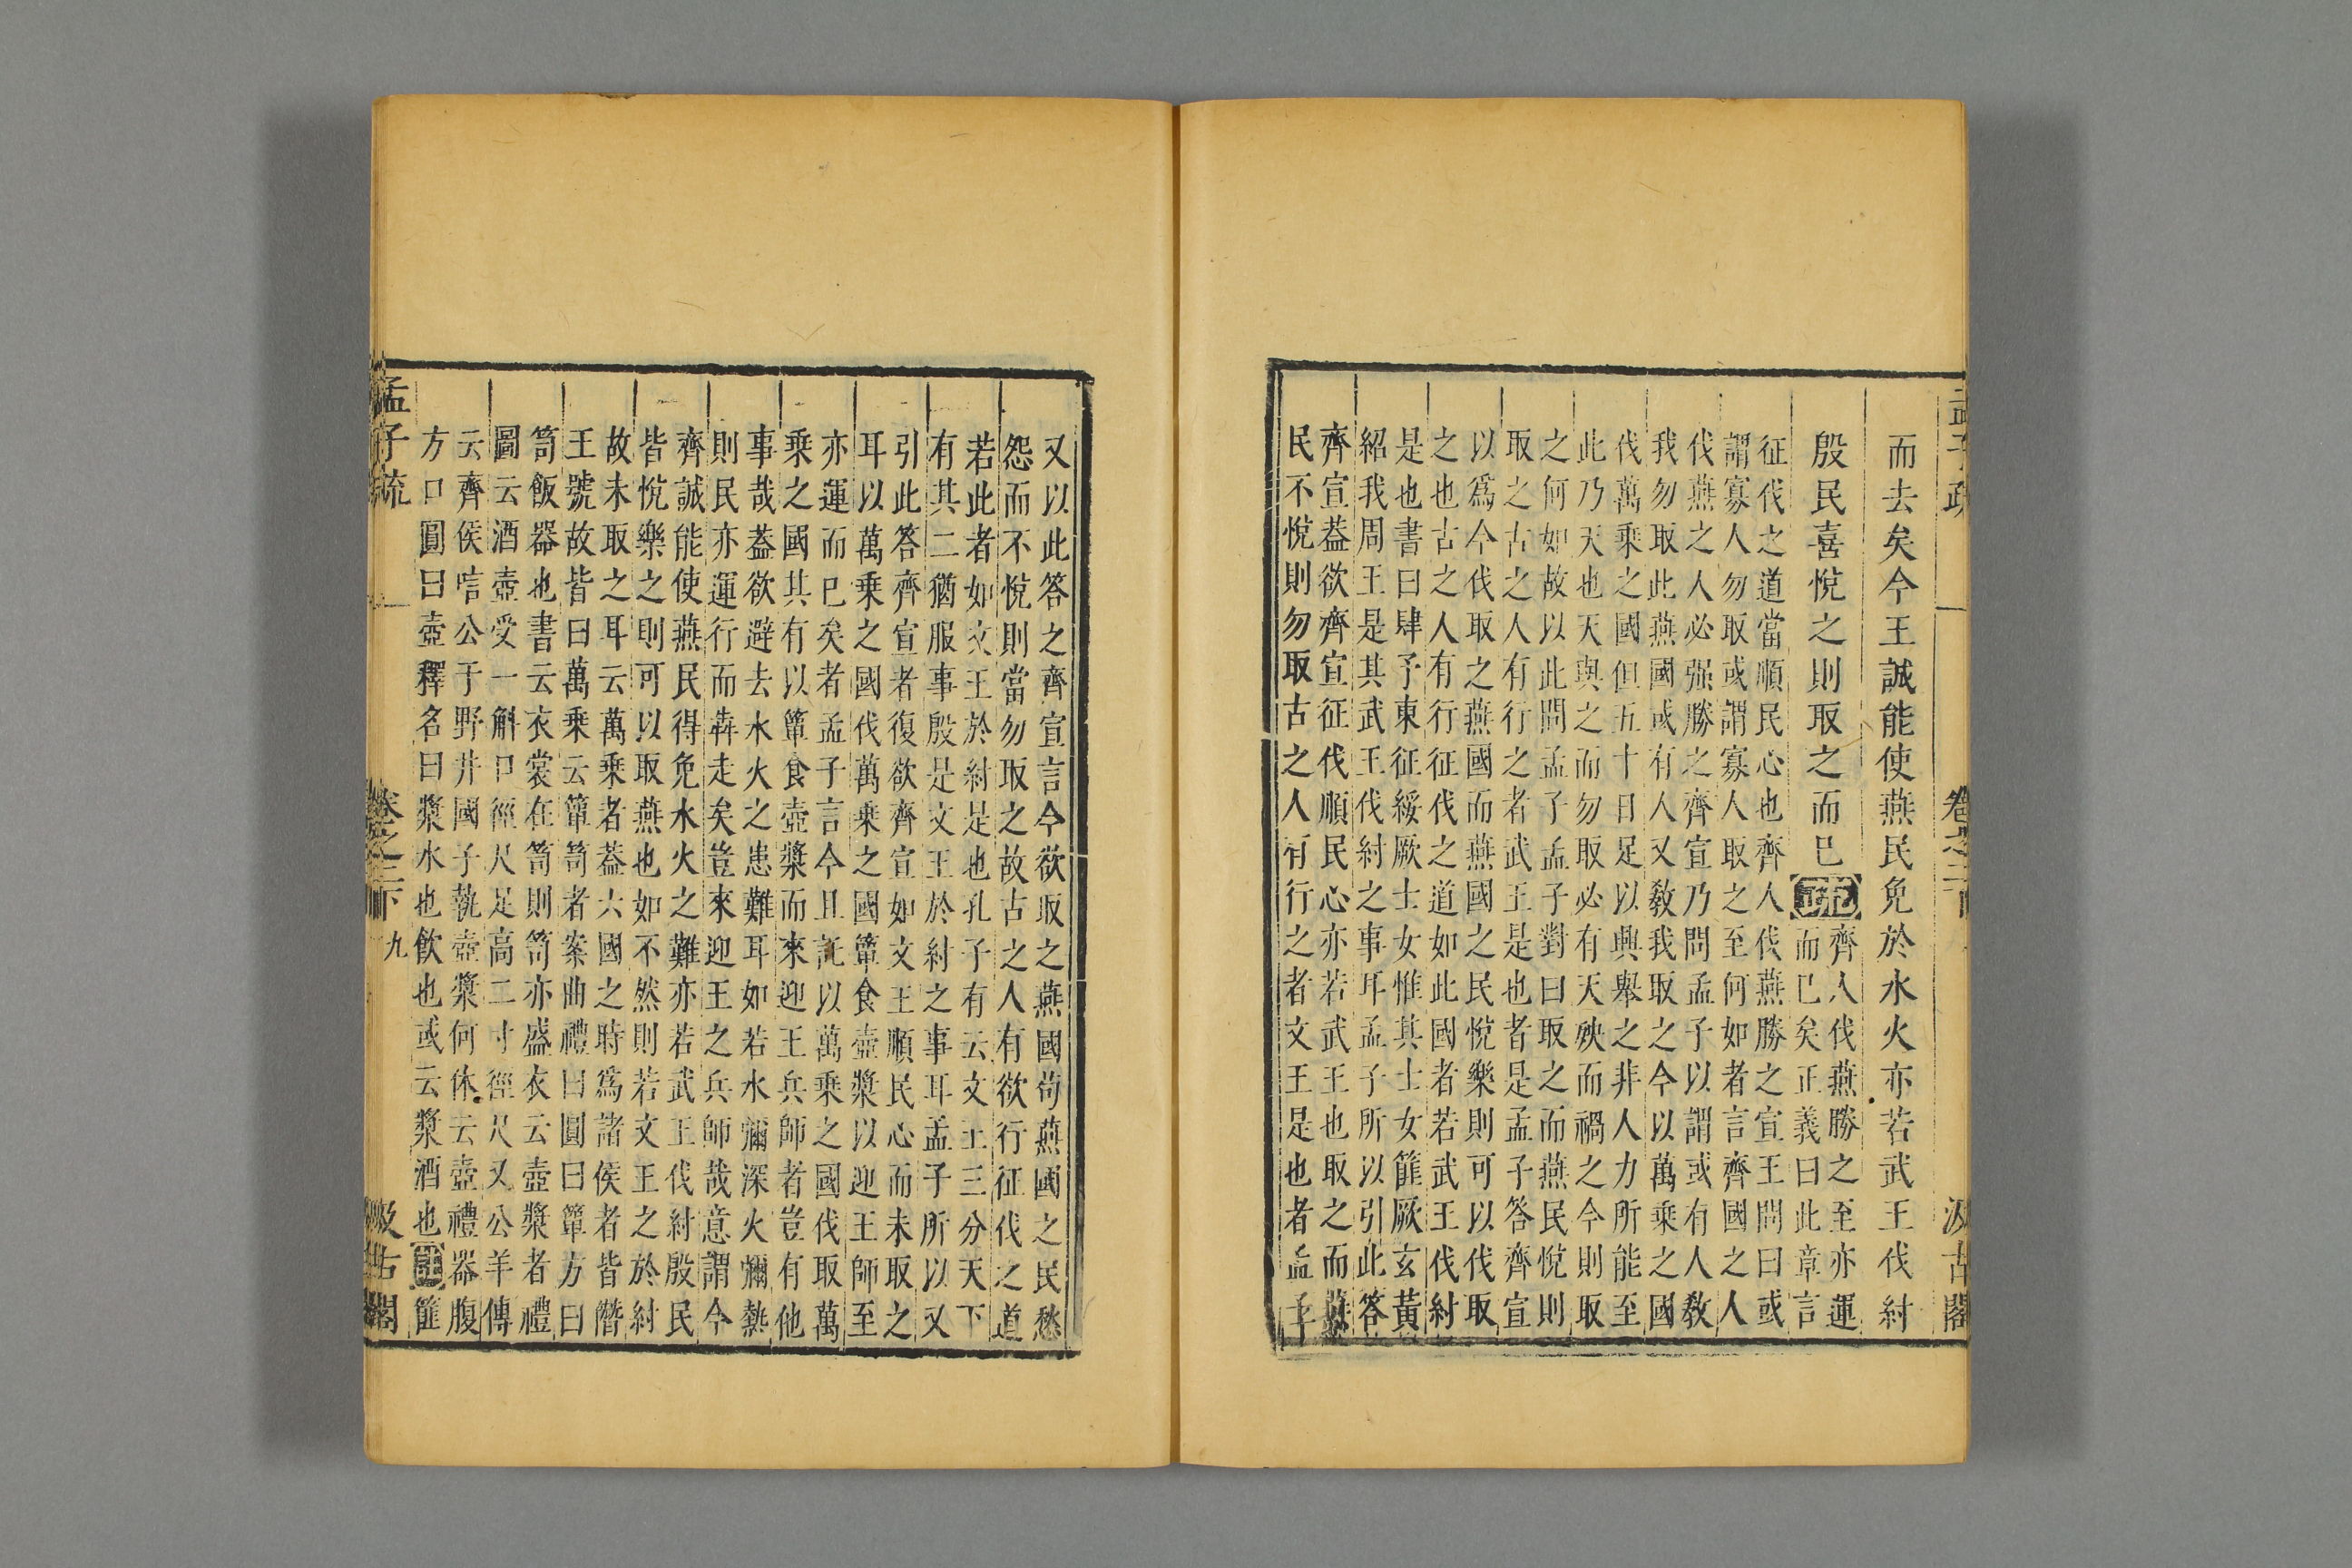 而去矣今王誠能使燕民免於水火亦若武王伐紂
殷民喜悅之則取之而已
疏
齊人伐燕勝之至亦運
而已矣正義曰此章言
征伐之道當順民心也齊人伐燕勝之宣王問曰或
謂寡人勿取或謂寡人取之至何如者言齊國之人
伐燕之人必强勝之齊宣乃問孟子以謂或有人敎
我勿取此燕國或有人又敎我取之今以萬乘之國
伐萬乘之國但五十日足以興舉之非人力所能至
此乃天也天與之而勿取必有天殃而禍之今則取
之何如故以此問孟子孟子對曰取之而燕民悅則
取之古之人有行之者武王是也者是孟子答齊宣
以爲今伐取之燕國而燕國之民悅樂則可以伐取
之也古之人有行征伐之道如此國者若武王伐紂
是也書曰肆予東征綏厥士女惟其士女篚厥玄黃
紹我周王是其武王伐紂之事耳孟子所以引此答
齊宣葢欲齊宣征伐順民心亦若武王也取之而燕
民不悅則勿取古之人有行之者文王是也者孟子
孟子疏
卷之二下
汲古閣
又以此答之齊宣言今欲取之燕國苟燕國之民愁
怨而不悅則當勿取之故古之人有欲行征伐之道
若此者如文王於紂是也孔子有云文王三分天下
有其二猶服事殷是文王於紂之事耳孟子所以又
引此答齊宣者復欲齊宣如文王順民心而未取之
耳以萬乘之國伐萬乘之國簞食壺漿以迎王師至
亦運而已矣者孟子言今且託以萬乘之國伐取萬
乘之國其有以簞食壺漿而來迎王兵師者豈有他
事哉葢欲避去水火之患難耳如若水彌深火彌熱
則民亦運行而奔走矣豈來迎王之兵師哉意謂今
齊誠能使燕民得免水火之難亦若武王伐紂殷民
皆悅樂之則可以取燕也如不然則若文王之於紂
故未取之耳云萬乘者葢六國之時爲諸侯者皆僭
王號故皆曰萬乘云簞笥者案曲禮曰圓曰簞方曰
笥飯器也書云衣裳在笥則笥亦盛衣云壺漿者禮
圖云酒壺受一斛口徑尺足高二寸徑尺又公羊傳
云齊侯唁公于野井國子執壺漿何休云壺禮器腹
方口圓曰壺釋名曰漿水也飲也或云漿酒也
註
篚
孟子疏
卷之二下
九
汲古閣